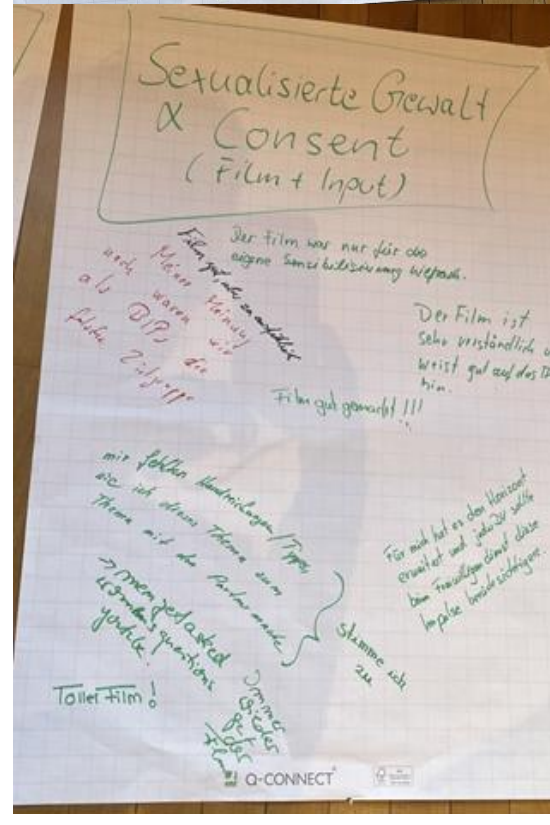 Sexualisierte Gewalt
& Consent
(Film + Input)
Der Film war nur für die
eigene Sensibilisierung hilfreich.
Film gut, aber zu ausführlich
Meiner Meinung
nach waren wir
als BIPs die
falsche Zielgruppe
Der Film ist
sehr verständlich u
weist gut auf das Th
hin.
Film gut gemacht!!!
mir fehlten Handreichungen/Tipps
wie ich dieses Thema zum
Thema mit den Partner mache
Stimme ich
zu
→ men get asked
women's questions
youtube.
Für mich hat es den Horizont
erweitert und jede/r sollte
beim Freiwilligendienst diese
Impulse berücksichtigen.
Toller Film!
Immer
wieder
gut
der
Film
Q-CONNECT